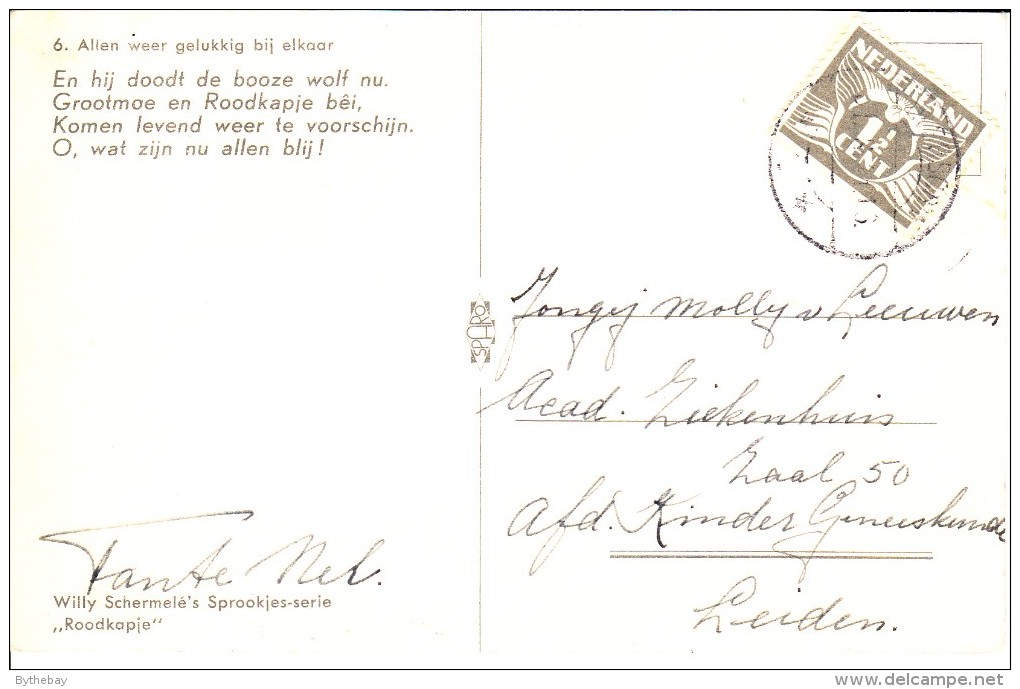 6. Allen weer gelukkig bij elkaar
En hij doodt de booze wolf nu.
Grootmoe en Roodkapje bêi,
Komen levend weer te voorschijn.
O, wat zijn nu allen blij!
NEDERLAND
1½
CENT
SPARO
Jongej Molly v Leeuwen
Acad. Ziekenhuis
Zaal 50
Afd. Kinder Geneeskunde
Leiden.
Tante Nel.
Willy Schermelé's Sprookjes-serie
„Roodkapje"
Bythebay
www.delcampe.net